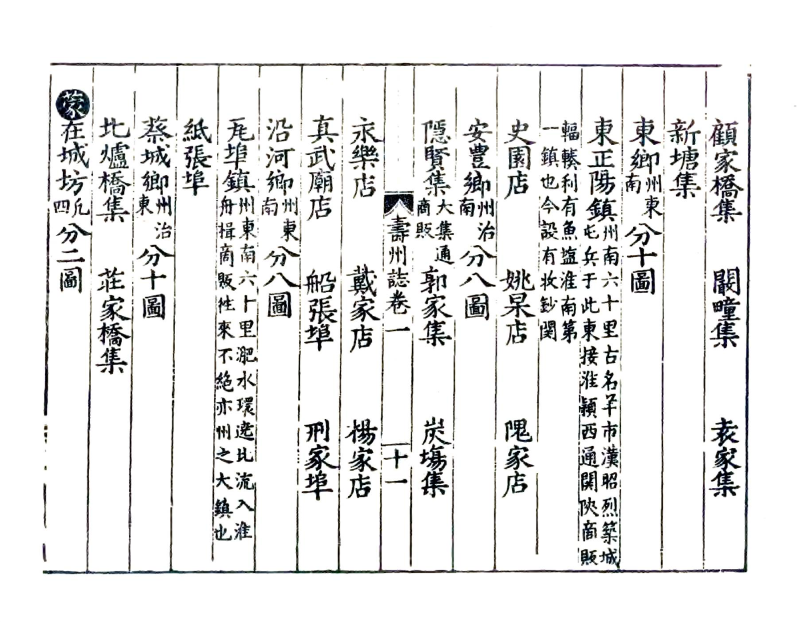 顧家橋集　闞疃集　袁家集
新塘集
東鄉州東南分十圖
東正陽鎮州南六十里古名羊市漢昭烈築城屯兵于此東接淮潁西通関陝商販
輻輳利有魚塩淮南第一鎮也今設有收鈔関
史園店　姚杲店　隗家店
安豐鄉州治南分八圖
隱賢集大集通商販　郭家集　炭塲集
壽州誌卷一　十一
永樂店　戴家店　楊家店
真武廟店　船張埠　刑家埠
沿河鄉州東南分八圖
瓦埠鎮州東南六十里淝水環遶北流入淮舟楫商販徃來不絶亦州之大鎮也
紙張埠
蔡城鄉州治東分十圖
北爐橋集　莊家橋集
蒙在城坊凡四分二圖